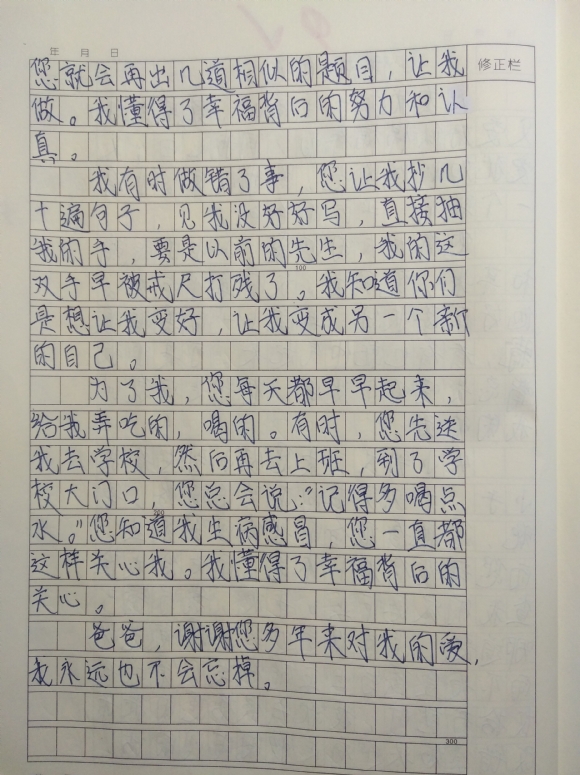 年 月 日
修正栏
您就会再出几道相似的题目，让我
做。我懂得了幸福背后的努力和认
真。
我有时做错了事，您让我抄几
十遍句子，见我没好好写，直接抽
我的手，要是以前的先生，我的这
双手早被戒尺打残了。我知道你们
是想让我变好，让我变成另一个新
的自己。
为了我，您每天都早早起来，
给我弄吃的，喝的。有时，您先送
我去学校，然后再去上班，到了学
校大门口，您总会说："记得多喝点
水。"您知道我生病感冒，您一直都
这样关心我。我懂得了幸福背后的
关心。
爸爸，谢谢您多年来对我的爱，
我永远也不会忘掉。
300